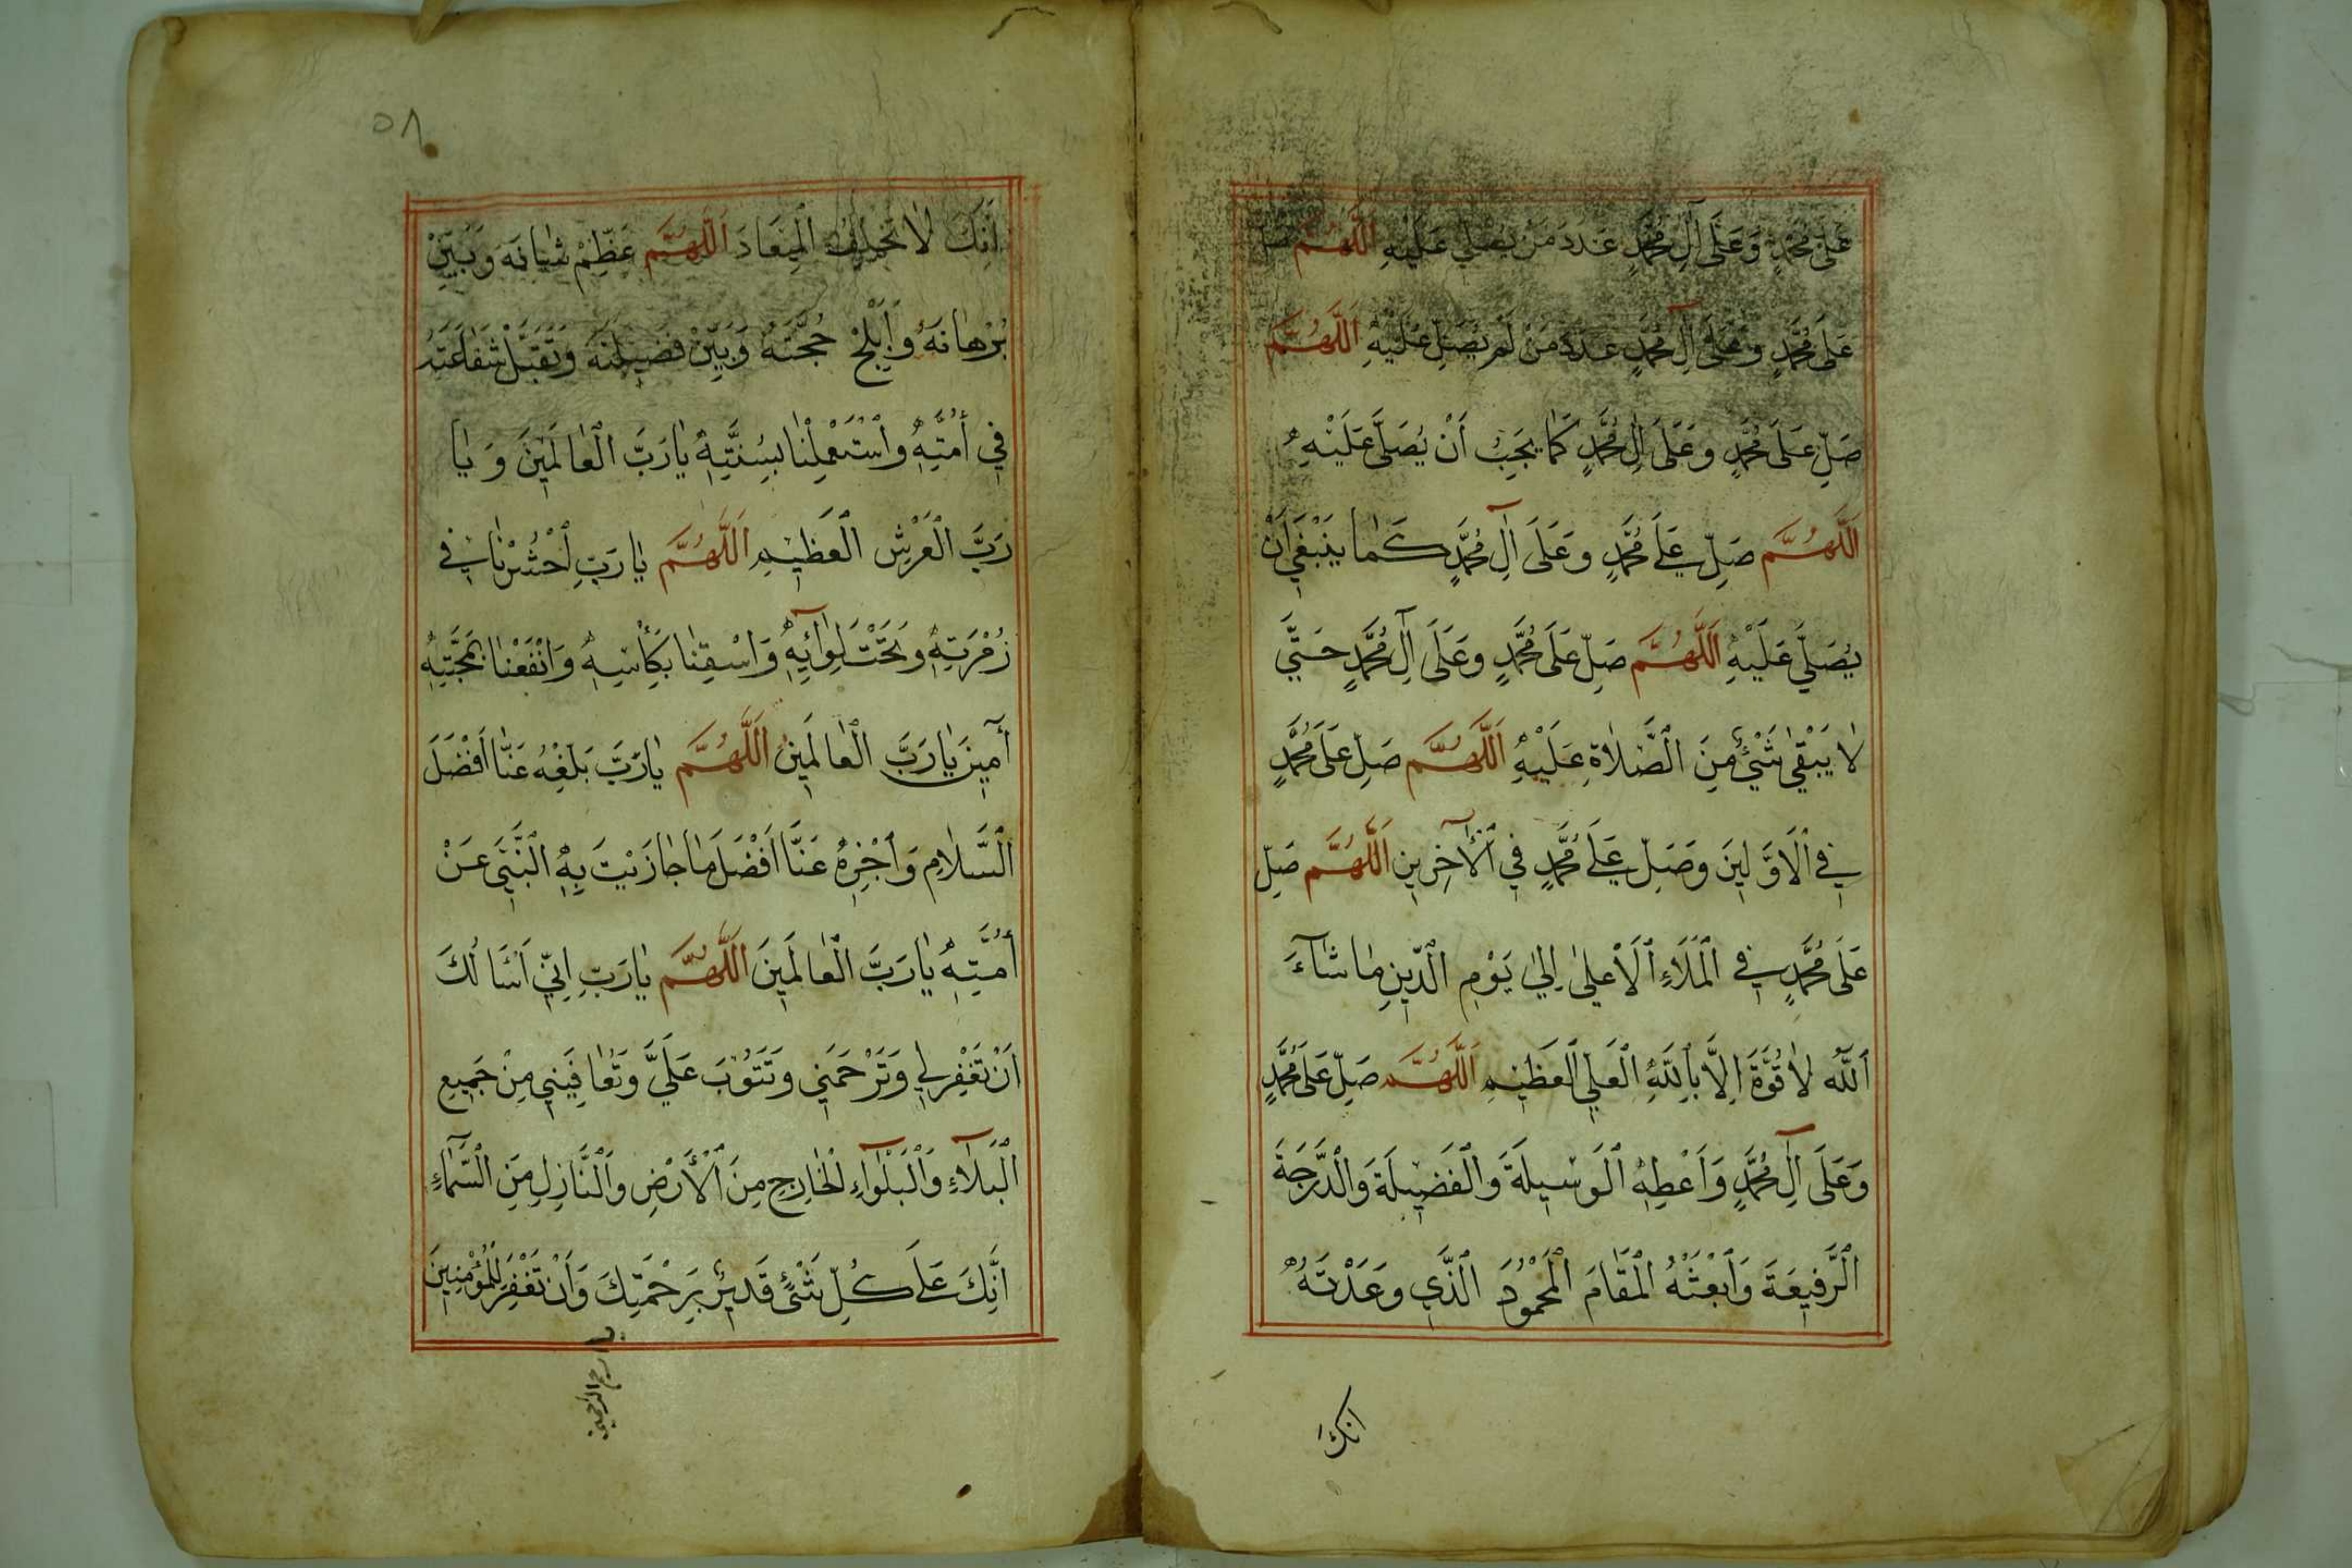 عَلَى مُحَمَّدٍ وَعَلَى آلِ مُحَمَّدٍ عَدَدَ مَنْ يُصَلِّي عَلَيْهِ اَللَّهُمَّ صَلِّ
عَلَى مُحَمَّدٍ وَعَلَى آلِ مُحَمَّدٍ عَدَدَ مَنْ لَمْ يُصَلِّ عَلَيْهِ اَللَّهُمَّ
صَلِّ عَلَى مُحَمَّدٍ وَعَلَى اٰلِ مُحَمَّدٍ كَمَا يَجِبُ أَنْ يُصَلَّى عَلَيْهِ
اَللَّهُمَّ صَلِّ عَلَى مُحَمَّدٍ وَعَلَى آلِ مُحَمَّدٍ كَمَا يَنْبَغِي اَنْ
يُصَلَّي عَلَيْهِ اَللَّهُمَّ صَلِّ عَلَى مُحَمَّدٍ وَعَلَى آلِ مُحَمَّدٍ حَتَّي
لَا يَبْقٰى شَيْئٌ مِنَ الصَّلَاةِ عَلَيْهِ اَللَّهُمَّ صَلِّ عَلَى مُحَمَّدٍ
فِي الْاَوَّلِينَ وَصَلِّ عَلَى مُحَمَّدٍ فِي الْآخِرِينِ اَللَّهُمَّ صَلِّ
عَلَى مُحَمَّدٍ فِي الْمَلَاءِ الْاَعْلىٰ اِلىٰ يَوْمِ الدِّينِ مَا شَآءَ
اللّٰهُ لَا قُوَّةَ اِلَّا بِاللَّهِ الْعَلِي الْعَظِيْمِ اَللَّهُمَّ صَلِّ عَلَى مُحَمَّدٍ
وَعَلَى آلِ مُحَمَّدٍ وَاَعْطِهِ الْوَسِيلَةَ وَالْفَضِيلَةَ وَالْدَّرَجَةَ
الْرَّفِيعَةَ وَابْعَثْهُ الْمَقَامَ الْمَحْمُوْدَ الَّذِي وَعَدْتَهُ
انك
٥٨
اَنَّكَ لَا تُخْلِفُ الْمِيْعَادَ اَللَّهُمَّ عَظِّمْ شَانَهَ وَبَيِّنْ
بُرْهَانَهُ وَاَبْلِجْ حُجَّتَهُ وَبَيِّنْ فَضِيلَتَهُ وَتَقَبَّلْ شَفَاعَتَهُ
فِي أُمَّتِهِ وَاسْتَعْمِلْنَا بِسُنَّتِهِ يَا رَبَّ الْعَالَمِينَ وَيَا
رَبَّ الْعَرْشِ الْعَظِيْمِ اَللَّهُمَّ يَا رَبِّ احْشُرْنَا فِي
زُمْرَتِهِ وَتَحْتَ لِوَائِهِ وَاسْقِنَا بِكَأْسِهِ وَانْفَعْنَا بِمَحَبَّتِهِ
آمِينَ يَا رَبَّ الْعَالَمِينَ اَللَّهُمَّ يَا رَبِّ بَلِّغْهُ عَنَّا اَفْضَلَ
السَّلَامِ وَاجْزِهُ عَنَّا اَفْضَلَ مَا جَازَيْتَ بِهِ النَّبِيَ عَنْ
أُمَّتِهِ يَا رَبَّ الْعَالَمِينَ اَللَّهُمَّ يَا رَبِّ اِنِّي اَسْاَلُكَ
اَنْ تَغْفِرَ لِي وَتَرْحَمَنِي وَتَتُوْبَ عَلَيَّ وَتُعَافِيَنِي مِنْ جَمِيعِ
الْبَلَاءِ وَالْبَلْوَآءِ الْخَارِجِ مِنَ الْأَرْضِ وَالْنَّازِلِ مِنَ السَّمَاءِ
اِنَّكَ عَلَى كُلِّ شَيْئٍ قَدِيرٌ بِرَحْمَتِكَ وَاَنْ تَغْفِرَ لِلْمُؤْمِنِينَ